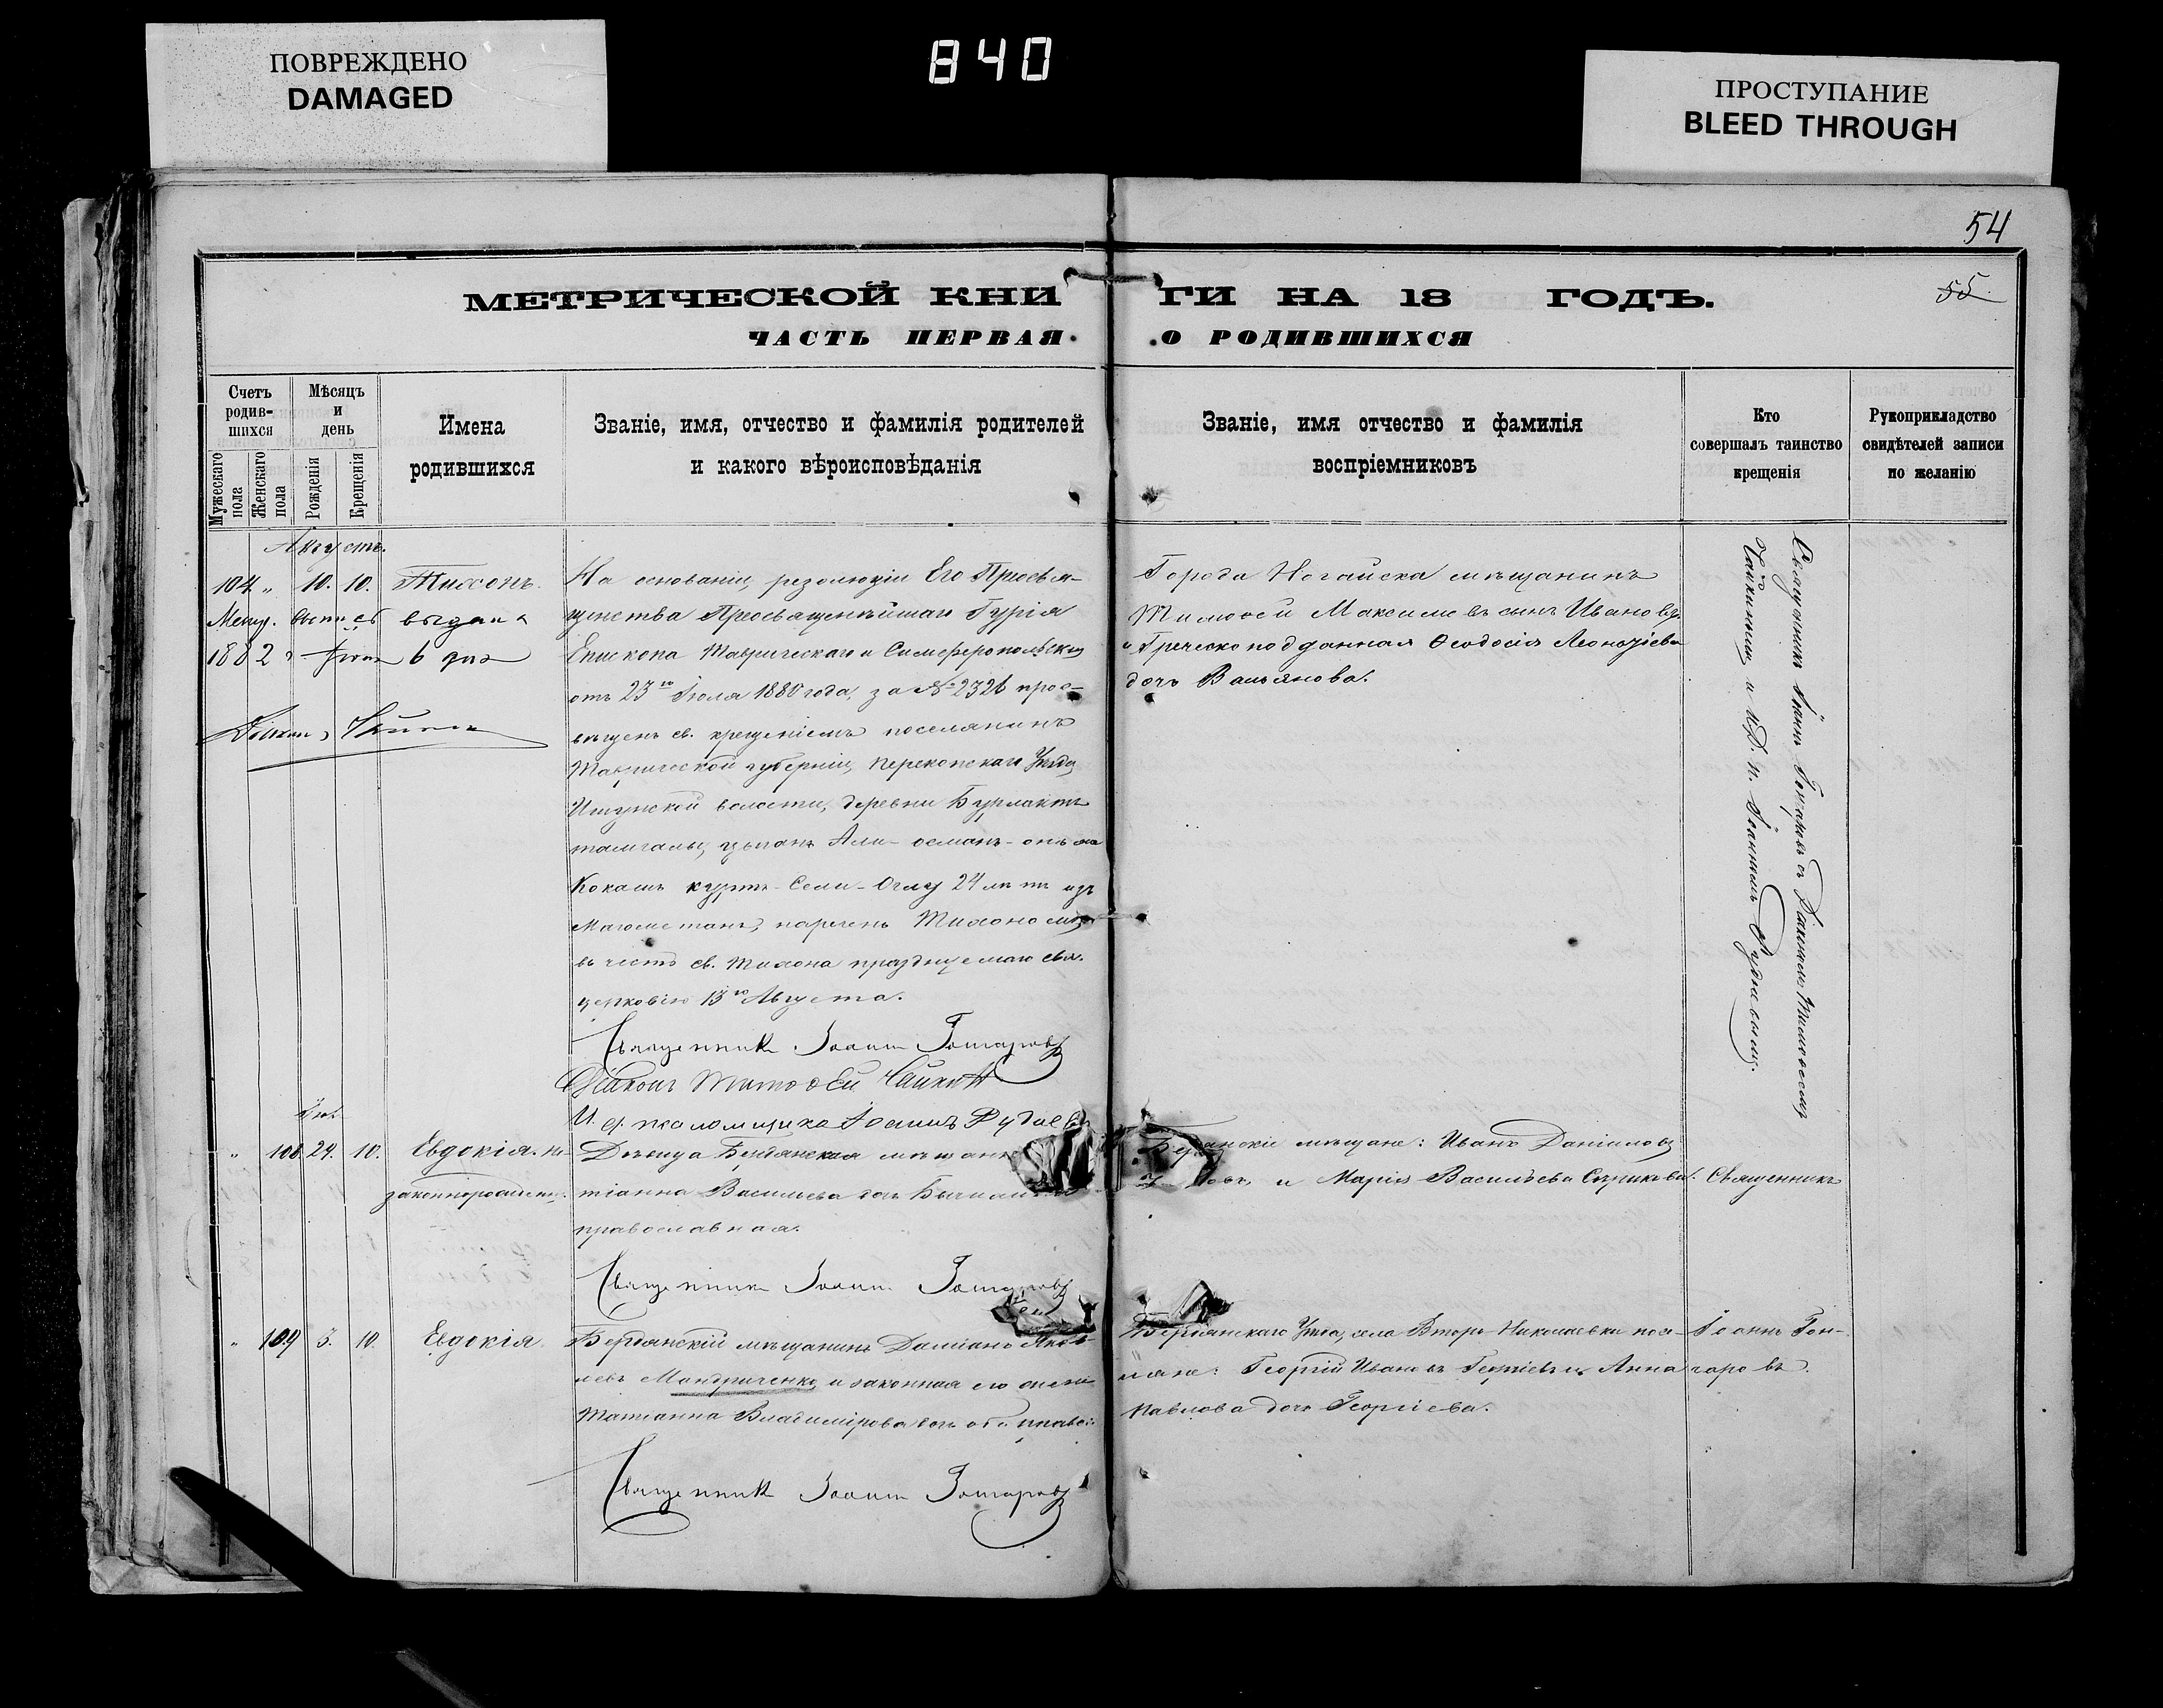 ПОВРЕЖДЕНО
DAMAGED
840
ПРОСТУПАНИЕ
BLEED THROUGH
54
55.
МЕТРИЧЕСКОЙ КНИГИ НА 18 ГОДЪ.
ЧАСТЬ ПЕРВАЯ. О РОДИВШИХСЯ
Счетъ родив-шихся
Мужескаго пола
Женскаго пола
Мѣсяцъ и день
Рожденія
Крещенія
Имена
родившихся
Званіе, имя, отчество и фамилія родителей
и какого вѣроисповѣданія
Званіе, имя отчество и фамилія
воспріемниковъ
Кто
совершалъ таинство
крещенія
Рукоприкладство
свидѣтелей записи
по желанію
Августъ.
104 " 10. 10. Тихонъ.
Метр. выпись выдана
1882 6 дня
На основаніи, резолюціи Его Преосвя-
щенства Преосвященнѣйшаго Гурія
Епископа Таврическаго и Симферопольскаго
отъ 23го Іюля 1880 года, за № 2326 прос-
вѣщенъ св. крещеніемъ поселянинъ
Таврической губерніи, Перекопскаго Уѣзда
волости, деревни
Али-османъ-
24 лѣтъ изъ
Магометанъ, нареченъ Тихономъ
въ честь св. Тихона празднуемаго
церковію 13го Августа.
Священникъ Іоаннъ Гончаровъ
Діаконъ Тимоѳей Чайкинъ
И. д. псаломщика Іоаннъ Рудневъ
Города Ногайска мѣщанинъ
Тимоѳей Максимовъ сынъ Ивановъ
и Греческоподданная Ѳеодосія
дочь
Священникъ Іоаннъ Гончаровъ съ Діакономъ Тимоѳеемъ
Чайкинымъ и И.Д. п. Іоанномъ Рудневымъ.
" 108. 24. 10. Евдокія. не-
законнорожден.
Дѣвица Бердянская
тіанна Васильева дочь
православная.
Священникъ Іоаннъ Гончаровъ
мѣщане: Иванъ Даніиловъ
и Марія Васильева
Священникъ
" 109 5. 10. Евдокія.
Бердянскій мѣщанинъ Даміанъ
левъ Мандриченко, и законная его жена
Татіанна Владимірова оба правос.
Священникъ Іоаннъ Гончаровъ
Бердянскаго Уѣзда, села Второ-Николаевки посе-
ляне: Георгій Ивановъ Георгіевъ и Анна
Павлова дочь Георгіева.
Іоаннъ Гон-
чаровъ.